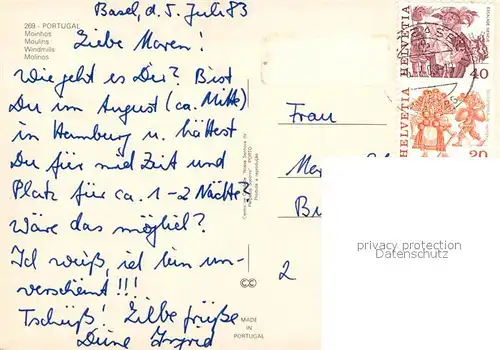 Basel, d. 5. Juli 83
269 - PORTUGAL
Moinhos
Moulins
Windmills
Molinos
Liebe Maren!
Wie geht es Dir? Bist
Du im August (ca. Mitte)
in Hamburg u. hättest
Du für mich Zeit und
Platz für ca. 1-2 Nächte?
Wäre das möglich?
Ich weiß, ich bin un-
verschämt!!!
Tschüß! Liebe Grüße
Deine Ingrid
PORTO
MADE IN
PORTUGAL
Frau
2
HELVETIA
40
HELVETIA
20
BASEL
privacy protection
Datenschutz